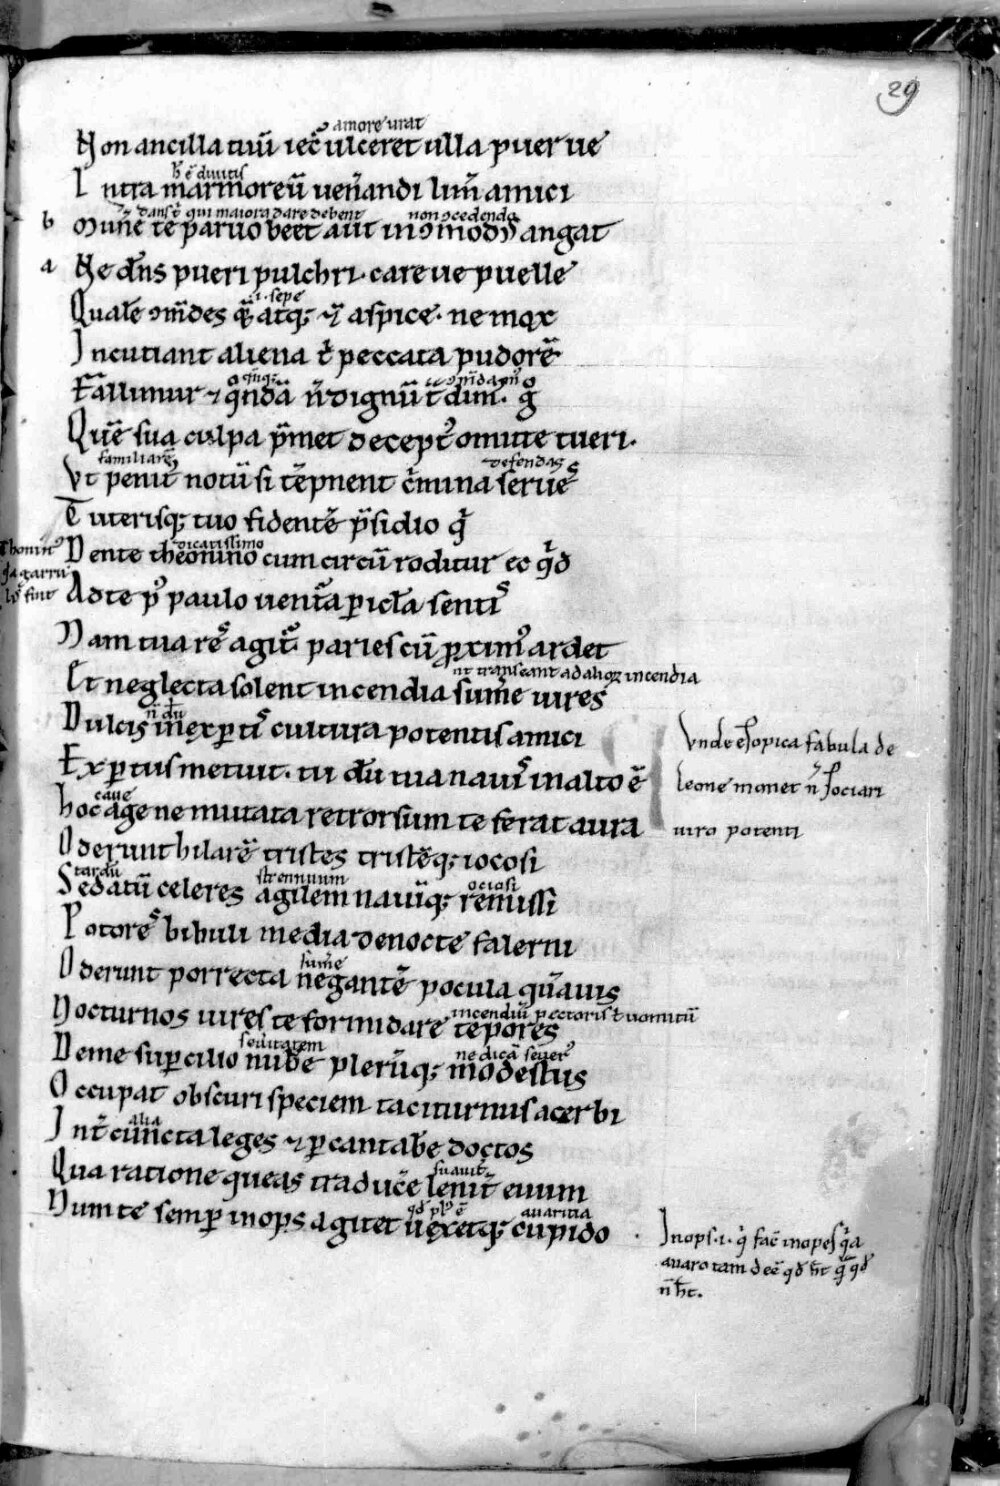 29
amore urat
Non ancilla tuū iec᷒ ulceret ulla puer ue
.i. ē diuitis
Intra marmoreū uen̄andi lim̄ amici
dans qui maiora dare debent non ɔcedendo
b Mun̄e te paruo beet aut inɔmodꝰ angat
a Ne dn̄s pueri pulchri. care ue puelle
.i. sepe
Qualē ɔm̄des q̄ atq; ⁊ aspice. ne mox
Incutiant aliena t̄ peccata pudorē
Fallimur ⁊ q̊ndā n̄ dignū t̄dim̄. g̊
Quē sua culpa p̄met decept᷒ omitte tueri.
familiarē defendas
Vt penit᷒ notū si tēptent c̄mina serues
Tuterisq; tuo fidentē p̄sidio q̄
dicatissimo
Dente theonino cum circū roditur ec q̇d
Ad te p᷒ paulo uent̄a ꝑicl̄a sentis
Nam tua res agit᷒ paries cū ꝓxim᷒ ardet
ut transeant ad aliqꝫ incendia
Et neglecta solent incendia sum̄e uires
Dulcis inexꝑtis cultura potentis amici
Exꝑtus metuit. tu dū tua nauis in alto ē
caue
Hoc age ne mutata retrorsum te ferat aura
Vnde esopica fabula de
leone monet n̄ sociari
uiro potenti
Oderunt hilarē tristes tristēq; iocosi
tardū strennuum ociosi
Sedatū celeres agilem nauūq; remissi
Potores bibuli media de nocte falerni
sum̄e
Oderunt porrecta negantē pocula quāuis
incendiū pectoris t̄ uomitū
Nocturnos uires te formidare tepores
seuitatem
Deme suꝑcilio nubē plerūq; modestus
Occupat obscuri speciem taciturnus acerbi
alia
Int̄ cūncta leges ⁊ ꝑcantab̄e doctos
suauit᷒
Qua ratione queas traducē lenit᷒ euum
auaritia
Num te semꝑ inops agitet uexetq; cupido
Inops .i. q̄ fac̄ inopes q̄a
auaro tam deē qd̄ h̄t q̄ qd̄
n̄ h̄t.